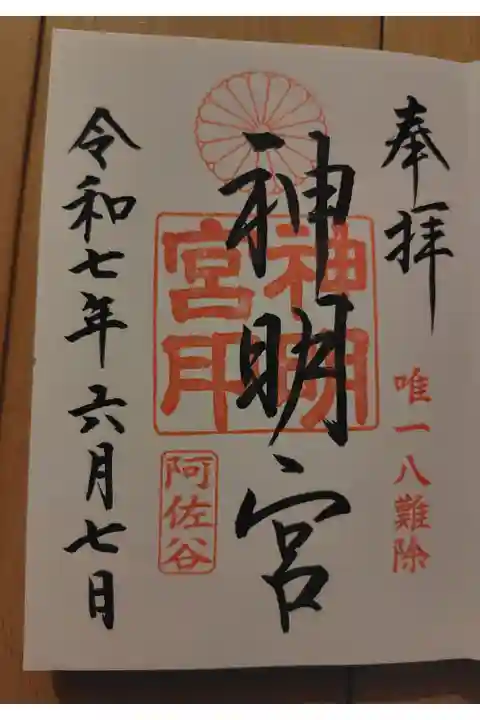 奉拝
唯一八難除
神明宮
神明宮印
阿佐谷
令和七年六月七日